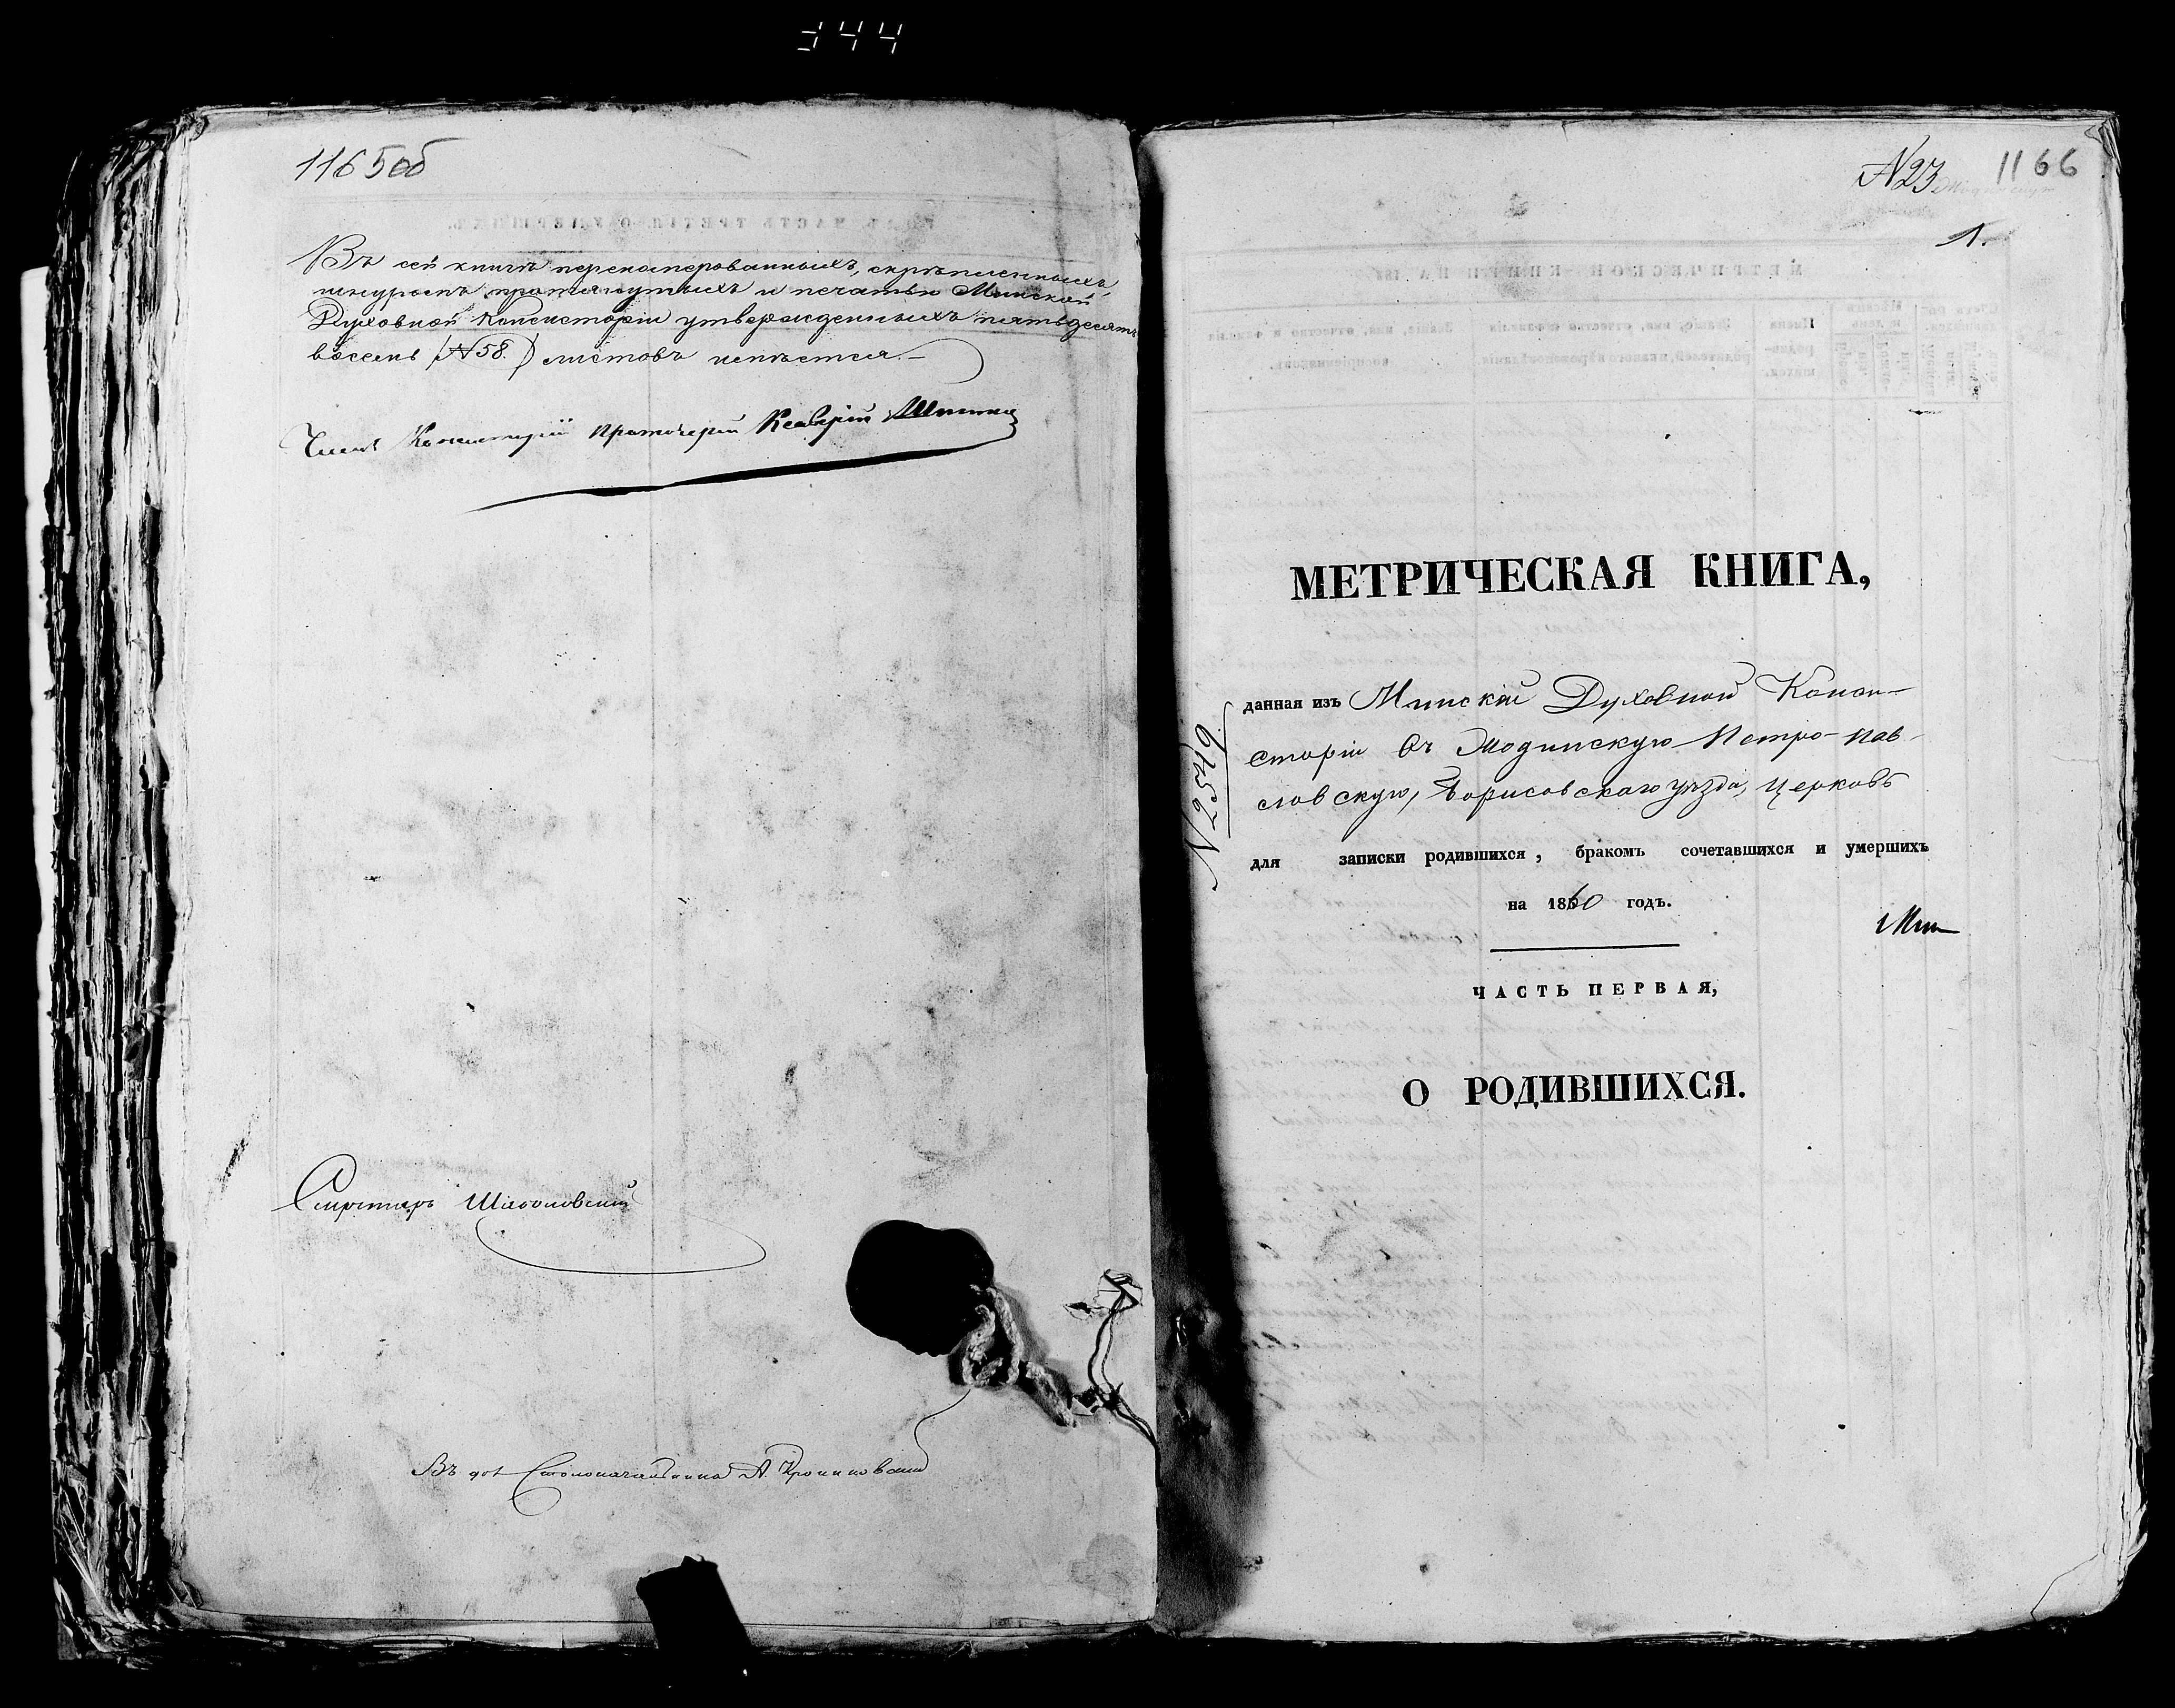 344
1165об
Въ сей книгѣ перенумерованныхъ, скрѣпленныхъ,
шнуромъ протянутыхъ и печатью Минской
Духовной Консисторіи утвержденныхъ пятьдесятъ
восемь (№58.) листовъ имѣется.—
Членъ Консисторіи протоіерей
Секретарь
Въ дол. Столоначальника А.
№23 1166
1.
МЕТРИЧЕСКАЯ КНИГА,
данная изъ Минской Духовной Конси-
сторіи въ Жодинскую Петро-Пав-
ловскую, Борисовскаго уѣзда, Церковь
№2549
для записки родившихся, бракомъ сочетавшихся и умершихъ
на 1860 годъ.
ЧАСТЬ ПЕРВАЯ,
О РОДИВШИХСЯ.